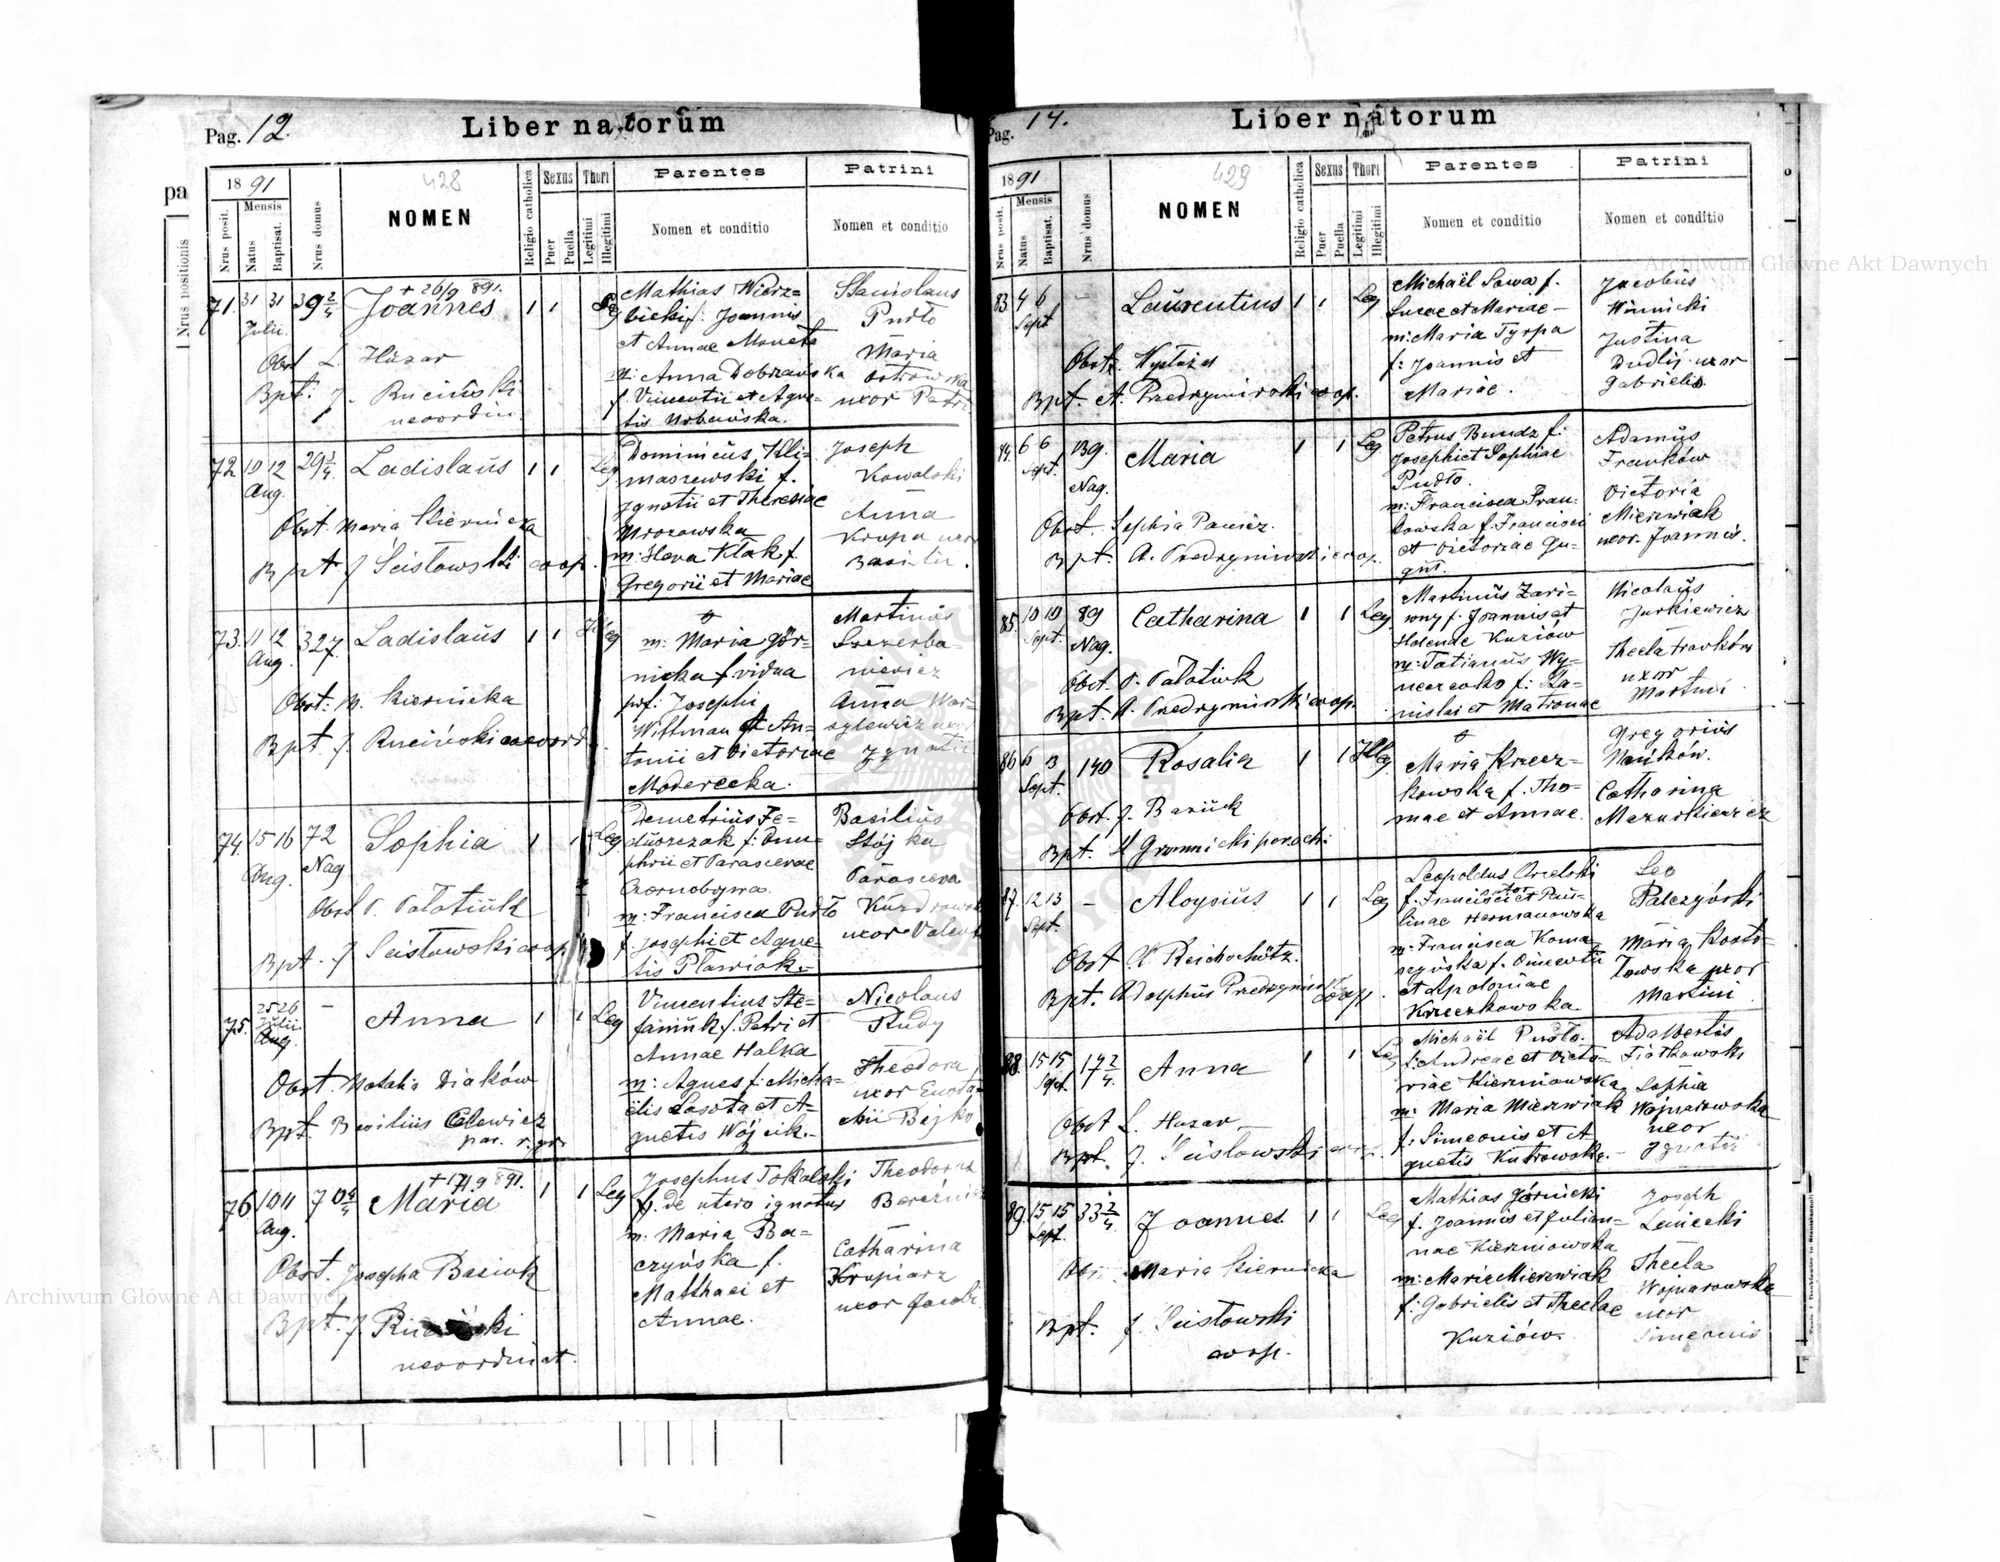 Pag. 12.
Liber natorum
1891
428
Nrus posit.
Mensis
Natus
Baptisat.
Nrus domus
NOMEN
Religio catholica
Sexus
Puer
Puella
Thori
Legitimi
Illegitimi
Parentes
Nomen et conditio
Patrini
Nomen et conditio
71. 31 31 Julii 39 2/4
+ 26/9 891.
Joannes 1 1 Leg
Obst L. Huzar
Bpt. J. Ruciński
neoordin.
Mathias Wierz=
bicki f. Joannis
et Annae Moneta
m: Anna Dobrzańska
f. Vincentii et Agne=
tis Urbańska.
Stanislaus
Pudło
Maria
Ostrowska
uxor Petri
72 10 12 Aug. 29 3/4
Ladislaus 1 1 Leg
Obst. Maria Kiernicka
Bpt. J Ścisłowski coop.
Dominicus Kli=
maszewski f.
Ignatii et Theresiae
Mrozowska
m: Heva Kłak f.
Gregorii et Mariae
Joseph
Kowalski
Anna
Krupa uxor
Basilii.
73. 11 12 Aug. 327.
Ladislaus 1 1 Illeg
Obst: M. Kiernicka
Bpt. J. Ruciński neoord.
m: Maria Gór=
nicka f vidua
p.f. Josephi
Wittman f An=
tonii et Victoriae
Moderecka.
Martinus
Szczerba=
niewicz
Anna Wa=
sylewicz uxor
Ignatii
74. 15 16 Aug. 72 Nag
Sophia 1 1 Leg
Obst P. Pałatiuk
Bpt. J Ścisłowski coop
Demetrius Fe=
duszczak f: Onu=
phrii et Parascevae
Czornobywa.
m: Francisca Pudło
f. Josephi et Agne=
tis Pławiak.-
Basilius
Stójka
Parasceva
uxor Valent
75. 25 26 Julii Aug. -
Anna 1 1 Leg
Obst. Natalia Diaków
Bpt. Basilius Celewicz
par. r. gr.
Vincentius Ste=
faniuk f. Petri et
Annae Halka
m: Agnes f: Micha=
ëlis Lasota et A=
gnetis Wójcik.-
Nicolaus
Rudy
Theodora
uxor Eusta=
chii Bejko
76 10 11 Aug. 70 4/4
+ 17/9 891.
Maria 1 1 Leg
Obst. Josepha Baziuk
Bpt. J. Ruciński
neoordinat.
Josephus Tokalski
f. de utero ignotus
m: Maria Ba=
czyńska f.
Matthaei et
Annae.
Theodorus
Catharina
Kropiarz
uxor Jacobi
Pag. 14.
Liber natorum
1891
429
Nrus posit.
Mensis
Natus
Baptisat.
Nrus domus
NOMEN
Religio catholica
Sexus
Puer
Puella
Thori
Legitimi
Illegitimi
Parentes
Nomen et conditio
Patrini
Nomen et conditio
83. 4 6 Sept -
Laurentius 1 1 Leg
Obst.
Bpt. A. Predrymirski coop.
Michaël Sowa f.
Lucae et Mariae -
m: Maria Tyrpa
f: Joannis et
Mariae.
Jacobus
Winnicki
Justina
Dudlij uxor
Gabrielis
84. 6 6 Sept. 139. Nag.
Maria 1 1 Leg
Obst. Sophia Panicz.
Bpt. A. Predrymirski coop.
Petrus Bundz f:
Josephi et Sophiae
Pudło.
m: Francisca Fran=
kowska f. Francisci
et Victoriae Gu=
gus.
Adamus
Franków
Victoria
Mierzwiak
uxor Joannis.
85. 10 10 Sept. 89 Nag.
Catharina 1 1 Leg
Obst. P. Pałatiuk
Bpt. A. Predrymirski coop.
Martinus Zari=
wny f: Joannis et
Helenae Kuziów
m: Tatianna Wy=
f: Sta=
nislai et Matronae
Nicolaus
Jurkiewicz
Thecla Franków
uxor
Martini
86 6 13 Sept. 140
Rosalia 1 1 Illeg
Obst. J. Baziuk
Bpt. H Gromnicki paroch:
Maria Krecz=
kowska f. Tho=
mae et Annae.
Gregorius
Wańków.
Catharina
Mazurkiewicz
87. 12 13 Sept. -
Aloysius 1 1 Leg
Obst A. Reichschütz.
Bpt. Adolphus Predrymirski coop.
Leopoldus Orelski
f. Francisci et Pau=
linae Hermanowska
m: Francisca Koma=
szyńska f. Vincentii
et Apoloniae
Kreczkowska.
Leo
Palczyński
Maria Kosto=
łowska uxor
Martini
88. 15 15 Sept. 17 2/4.
Anna 1 1 Leg
Obst L. Huzar
Bpt. J. Ścisłowski coop.
Michaël Pudło.
f. Andreae et Victo=
riae Kierniowska
m: Maria Mierzwiak
f: Simeonis et A=
gnetis Kutrowska.-
Adalbertus
Fiałkowski
Sophia
Wojnarowska
uxor
Ignatii
89. 15 15 Sept. 33 2/4.
Joannes 1 1 Leg
Obst. Maria Kiernicka
Bpt. J Ścisłowski
coop.
Mathias Górnicki
f. Joannis et Julian=
nae Kierniowska
m: Maria Mierzwiak
f: Gabrielis et Theclae
Kuziów.
Joseph
Łanecki
Thecla
Wojnarowska
uxor
Simeonis
pa
Nrus positionis
Archiwum Główne Akt Dawnych
Archiwum Główne Akt Dawnych